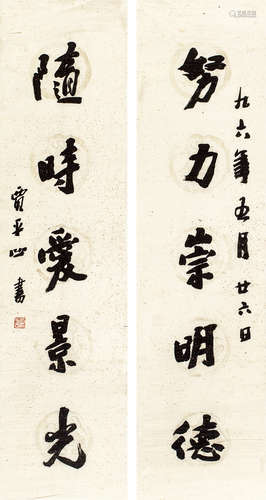 努力崇明德
九六年五月廿六日
隨時愛景光
賈平凹書